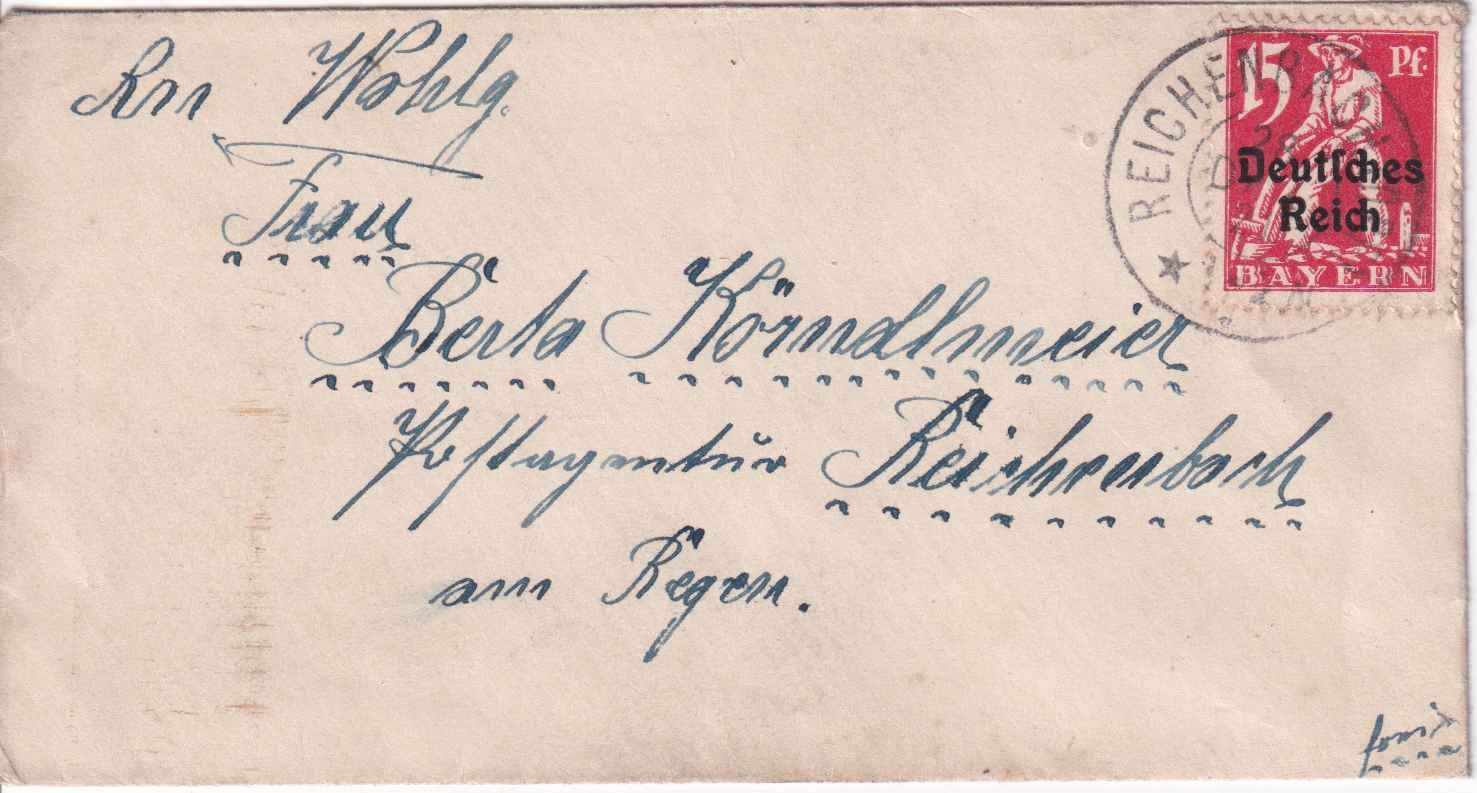 An Wohlg.
Frau
Berta Körndlmeier
Postagentur Reichenbach
am Regen.
15 Pf.
Deutsches
Reich
BAYERN
REICHENBACH